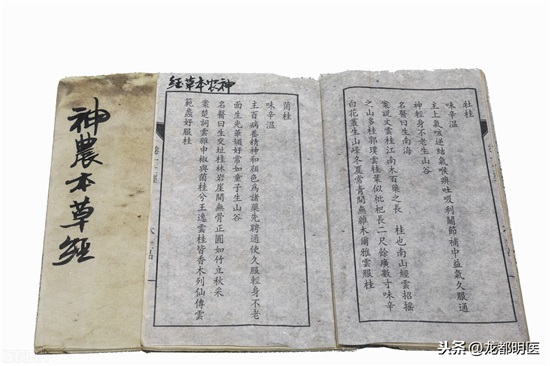 神農本草經
神农本草經
牡桂
味辛溫
主上氣咳逆結氣喉痺吐吸利關節補中益氣久服通
神輕身不老生山谷
名醫曰生南海
案說文雲桂江南木百藥之長 桂也南山經雲招搖
之山多桂郭璞雲桂葉似枇杷長二尺餘廣數寸味辛
白花叢生山峰冬夏常青間無雜木爾雅雲服桂
菌桂
味辛溫
主百病養精神和顏色為諸藥先聘通使久服輕身不老
面生光華媚好常如童子生山谷
名醫曰生交址桂林岩崖間無骨正圓如竹立秋采
案楚詞雲雜申椒與菌桂兮王逸雲桂皆香木列仙傳雲
範蠡好服桂
头条 @龙都明医